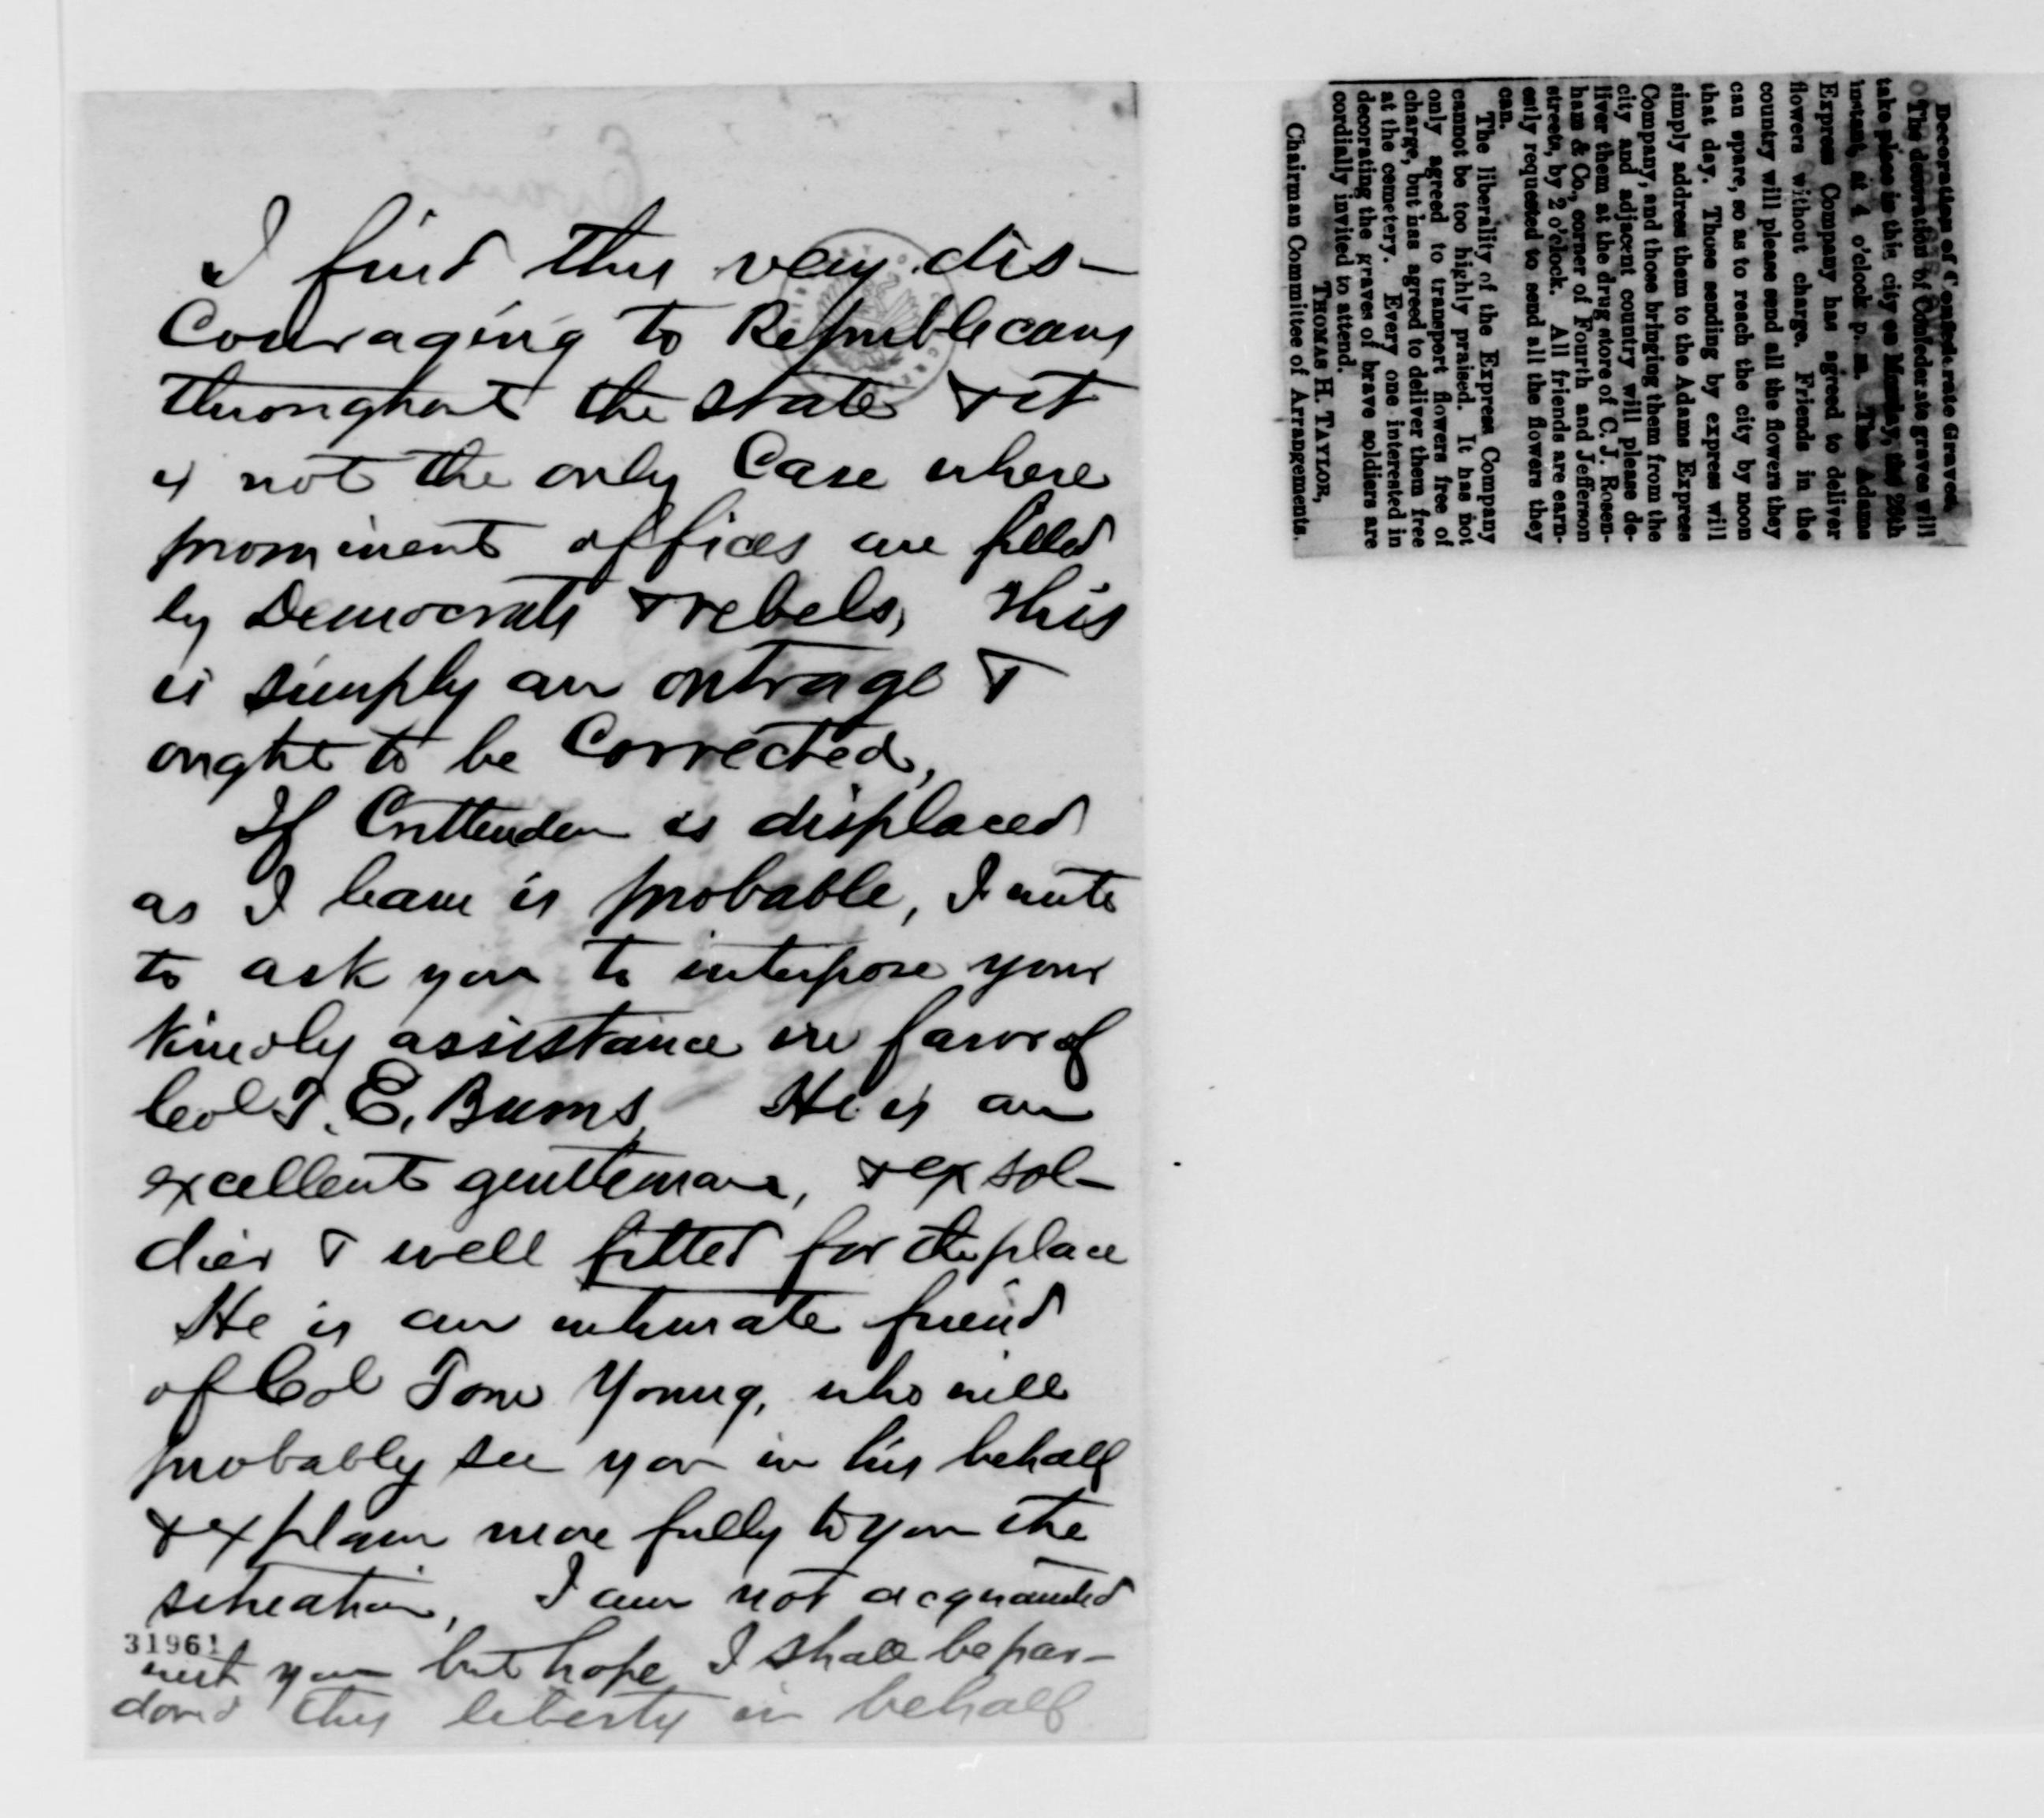 I find this very dis-
couraging to Republicans
throughout the State & it
is not the only Case where
prominent offices are filled
by Democrats & rebels, This
is simply an outrage &
ought to be Corrected,
If Crittenden is displaced
as I learn is probable, I write
to ask you to interpose your
kindly assistance in favor of
Col T. E. Burns, He is an
excellent gentleman, & ex sol-
dier & well fitted for the place
He is an intimate friend
of Col Tom Young, who will
probably see you in his behalf
& explain more fully to you the
situation, I am not acquainted
31961
with you but hope I shall be par-
dond this liberty in behalf
Decoration of Confederate Graves.
The decoration of Confederate graves will
take place in this city on Monday, the
instant, at 4 o'clock p. m. The Adams
Express Company has agreed to deliver
flowers without charge. Friends in the
country will please send all the flowers they
can spare, so as to reach the city by noon
that day. Those sending by express will
simply address them to the Adams Express
Company, and those bringing them from the
city and adjacent country will please de-
liver them at the drug store of C. J. Rosen-
ham & Co., corner of Fourth and Jefferson
streets, by 2 o'clock. All friends are earn-
estly requested to send all the flowers they
can.
The liberality of the Express Company
cannot be too highly praised. It has not
only agreed to transport flowers free of
charge, but has agreed to deliver them free
at the cemetery. Every one interested in
decorating the graves of brave soldiers are
cordially invited to attend.
THOMAS H. TAYLOR,
Chairman Committee of Arrangements.